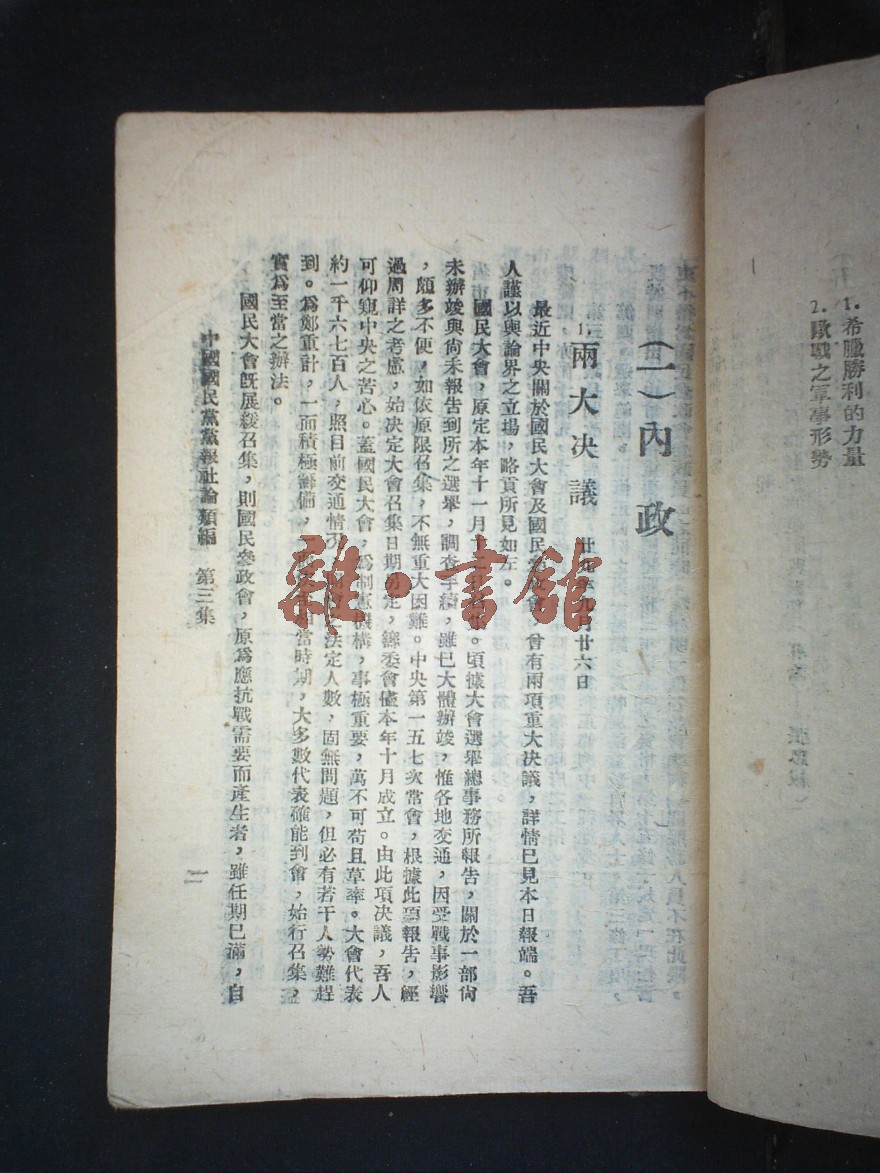 1.希臘勝利的力量
2.歐戰之軍事形勢
（一）內政
1.兩大決議 廿九年九月廿六日
最近中央關於國民大會及國民參政會，曾有兩項重大決議，詳情已見本日報端。吾
人謹以輿論界之立場，略貢所見如左。
國民大會，原定本年十一月十二日召集。頃據大會選舉總事務所報告，關於一部尙
未辦竣與尙未報告到所之選舉，調查手續，雖已大體辦竣，惟各地交通，因受戰事影響
，頗多不便，如依原限召集，不無重大因難。中央第一五七次常會，根據此項報告，經
過周詳之考慮，始决定大會召集日期另定，籌委會僅本年十月成立。由此項决議，吾人
可仰窺中央之苦心。蓋國民大會，爲制憲機構，事極重要，萬不可苟且草率。大會代表
約一千六七百人，照目前交通情況，開會之法定人數，固無問題，但必有若干人勢難趕
到。爲鄭重計，一面積極籌備，相當時期，大多數代表確能到會，始行召集，
實爲至當之辦法。
國民大會既展緩召集，則國民參政會，原爲應抗戰需要而產生者，雖任期已滿，自
中國國民黨黨報社論類編 第三集
一
雜·書館